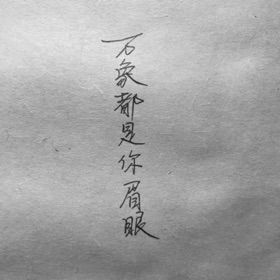 万象都是你眉眼